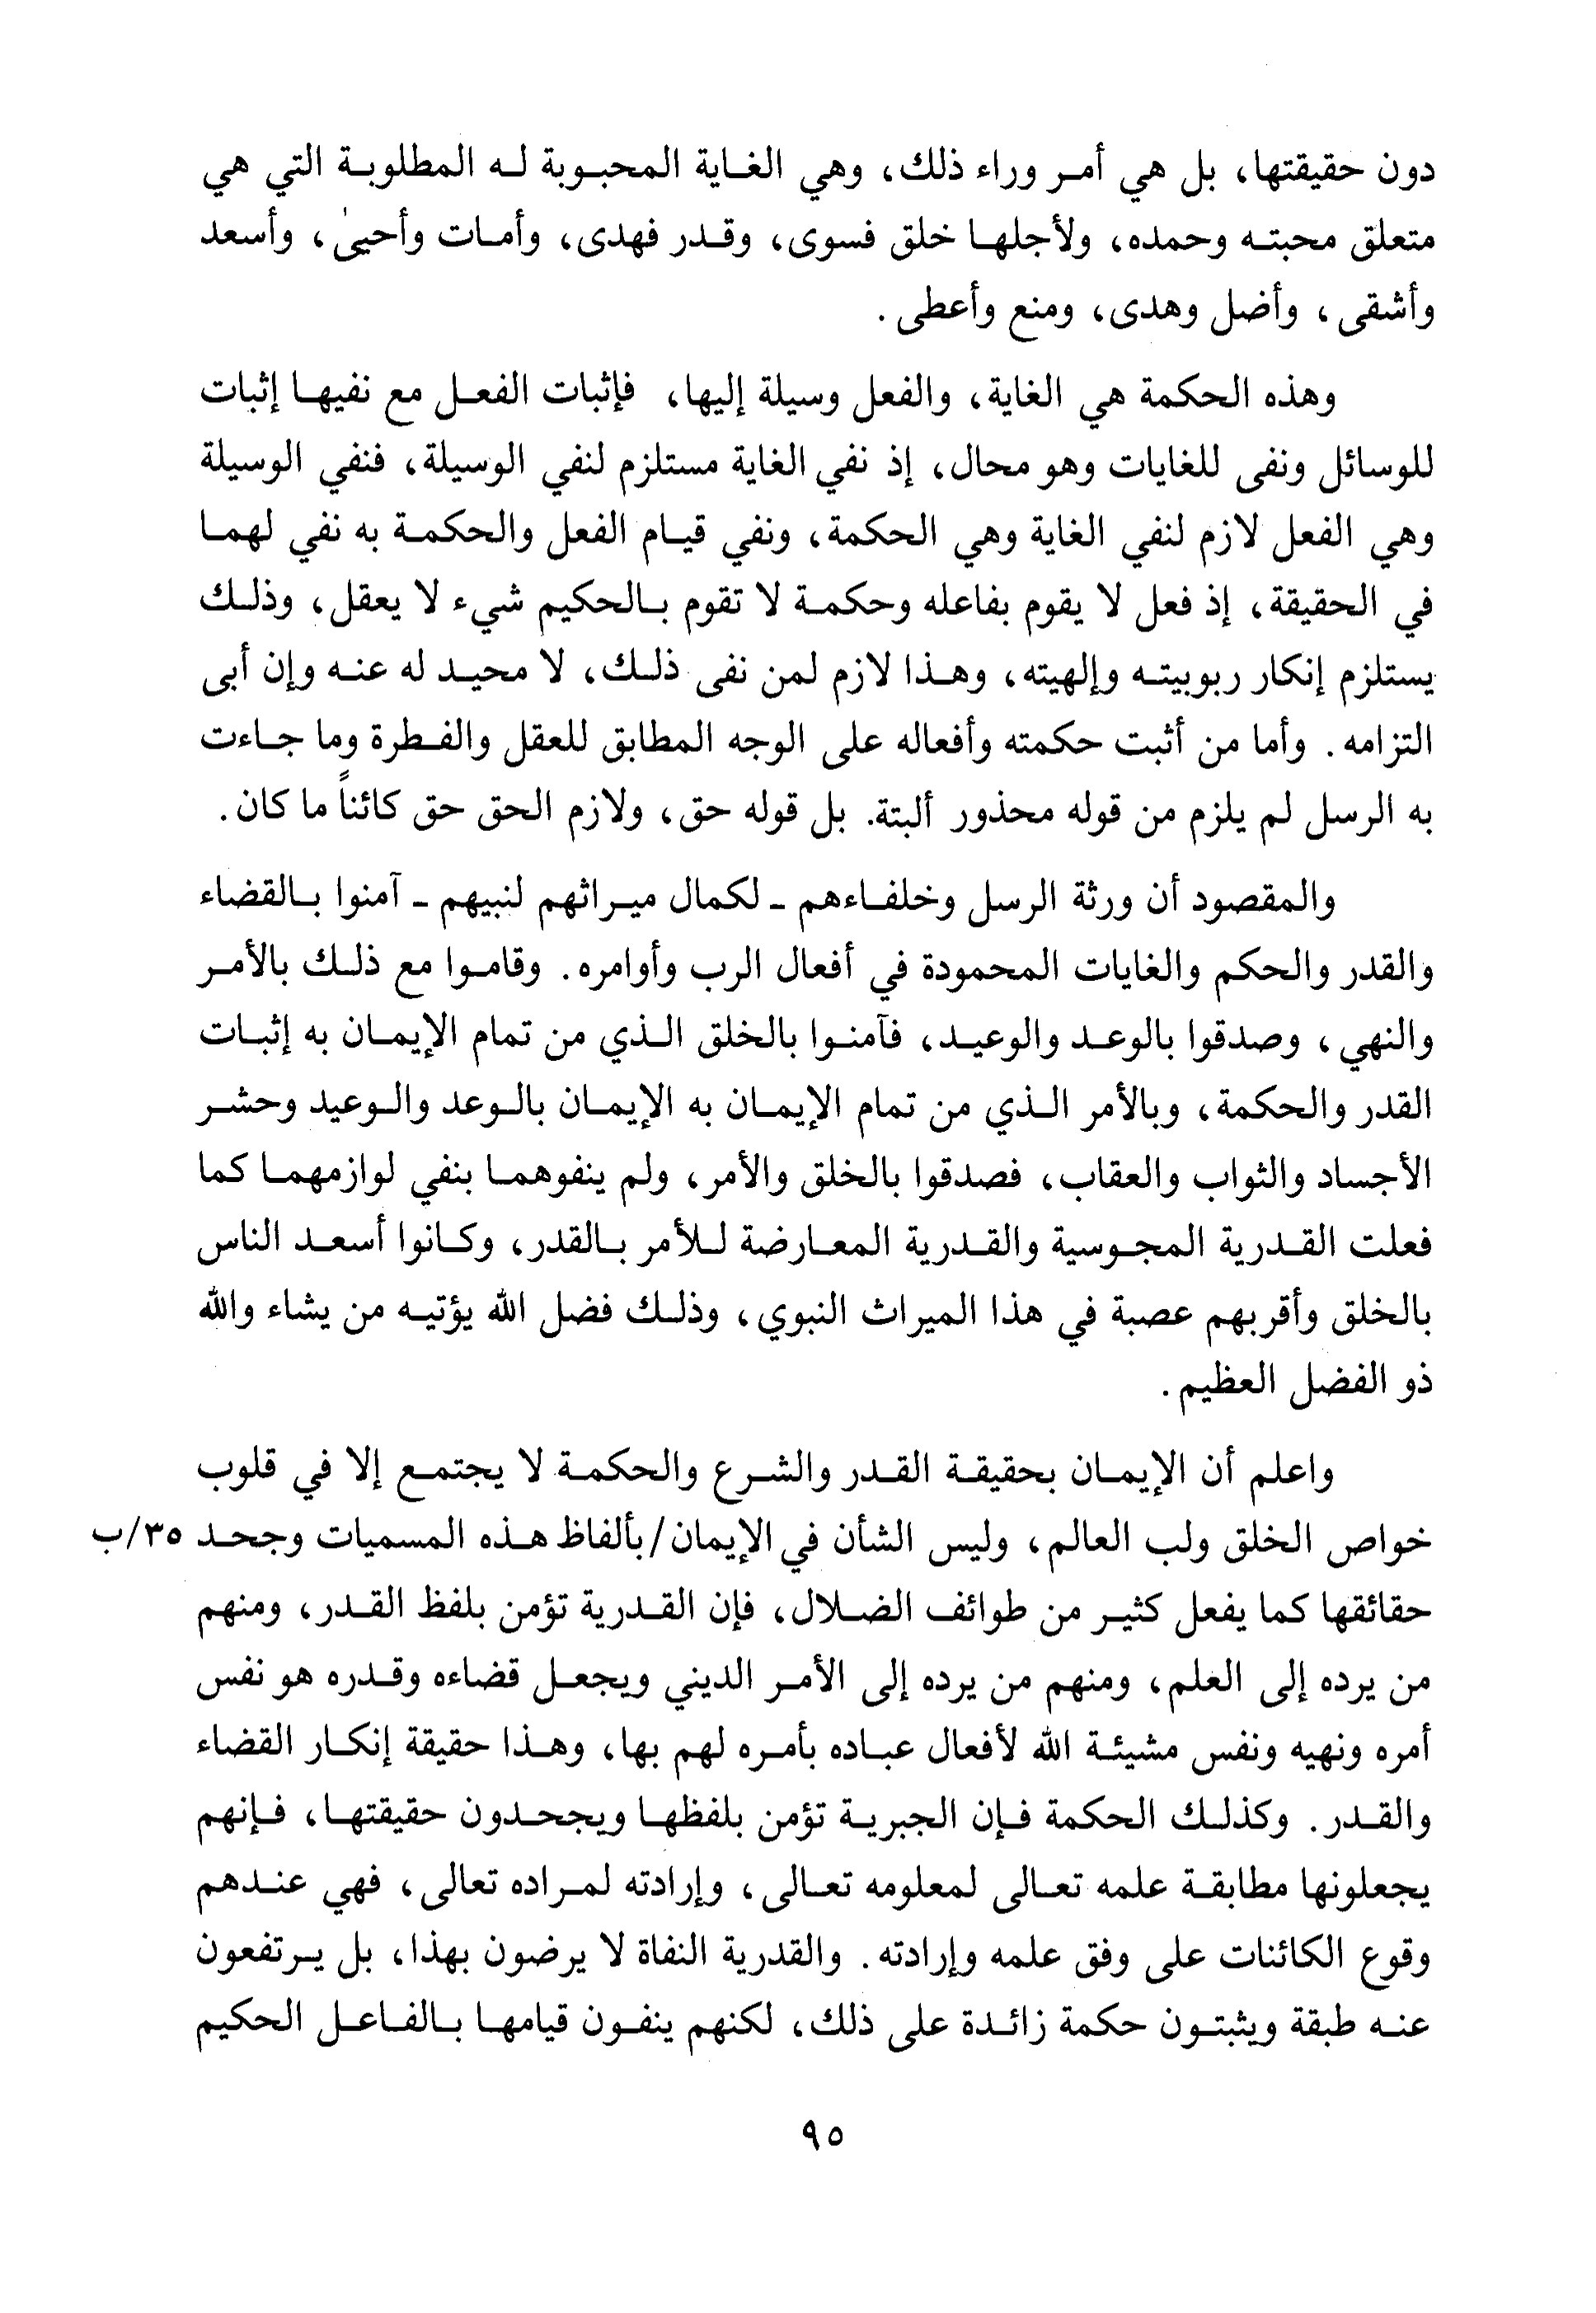 دون حقيقتها، بل هي أمر وراء ذلك، وهي الغاية المحبوبة له المطلوبة التي هي
متعلق محبته وحمده، ولأجلها خلق فسوى، وقدر فهدى، وأمات وأحيىٰ، وأسعد
وأشقى، وأضل وهدى، ومنع وأعطى.
وهذه الحكمة هي الغاية، والفعل وسيلة إليها، فإثبات الفعل مع نفيها إثبات
للوسائل ونفى للغايات وهو محال، إذ نفي الغاية مستلزم لنفي الوسيلة، فنفي الوسيلة
وهي الفعل لازم لنفي الغاية وهي الحكمة، ونفي قيام الفعل والحكمة به نفي لهما
في الحقيقة، إذ فعل لا يقوم بفاعله وحكمة لا تقوم بالحكيم شيء لا يعقل، وذلك
يستلزم إنكار ربوبيته وإلهيته، وهذا لازم لمن نفى ذلك، لا محيد له عنه وإن أبى
التزامه. وأما من أثبت حكمته وأفعاله على الوجه المطابق للعقل والفطرة وما جاءت
به الرسل لم يلزم من قوله محذور ألبتة. بل قوله حق، ولازم الحق حق كائناً ما كان.
والمقصود أن ورثة الرسل وخلفاءهم - لكمال ميراثهم لنبيهم - آمنوا بالقضاء
والقدر والحكم والغايات المحمودة في أفعال الرب وأوامره. وقاموا مع ذلك بالأمر
والنهي، وصدقوا بالوعد والوعيد، فآمنوا بالخلق الذي من تمام الإيمان به إثبات
القدر والحكمة، وبالأمر الذي من تمام الإيمان به الإيمان بالوعد والوعيد وحشر
الأجساد والثواب والعقاب، فصدقوا بالخلق والأمر، ولم ينفوهما بنفي لوازمهما كما
فعلت القدرية المجوسية والقدرية المعارضة للأمر بالقدر، وكانوا أسعد الناس
بالخلق وأقربهم عصبة في هذا الميراث النبوي، وذلك فضل الله يؤتيه من يشاء والله
ذو الفضل العظيم.
واعلم أن الإيمان بحقيقة القدر والشرع والحكمة لا يجتمع إلا في قلوب
خواص الخلق ولب العالم، وليس الشأن في الإيمان/بألفاظ هذه المسميات وجحد ٣٥/ب
حقائقها كما يفعل كثير من طوائف الضلال، فإن القدرية تؤمن بلفظ القدر، ومنهم
من يرده إلى العلم، ومنهم من يرده إلى الأمر الديني ويجعل قضاءه وقدره هو نفس
أمره ونهيه ونفس مشيئة الله لأفعال عباده بأمره لهم بها، وهذا حقيقة إنكار القضاء
والقدر. وكذلك الحكمة فإن الجبرية تؤمن بلفظها ويجحدون حقيقتها، فإنهم
يجعلونها مطابقة علمه تعالى لمعلومه تعالى، وإرادته لمراده تعالى، فهي عندهم
وقوع الكائنات على وفق علمه وإرادته. والقدرية النفاة لا يرضون بهذا، بل يرتفعون
عنه طبقة ويثبتون حكمة زائدة على ذلك، لكنهم ينفون قيامها بالفاعل الحكيم
٩٥